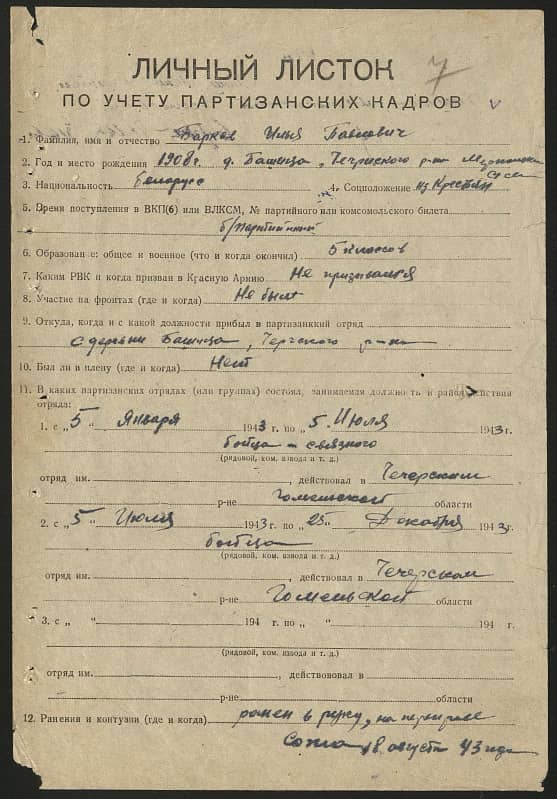 7
ЛИЧНЫЙ ЛИСТОК
ПО УЧЕТУ ПАРТИЗАНСКИХ КАДРОВ
1. Фамилия, имя и отчество Барков Илья Павлович
2. Год и место рождения 1908 г. д. Башица, Чечерского р-на
3. Национальность Белорус 4. Соцположение из Крестьян
5. Время поступления в ВКП(б) или ВЛКСМ, № партийного или комсомольского билета
б/партийный
6. Образование: общее и военное (что и когда окончил) 5 классов
7. Каким РВК и когда призван в Красную Армию Не призывался
8. Участие на фронтах (где и когда) Не был
9. Откуда, когда и с какой должности прибыл в партизанкий отряд
с деревни Башица, р-на
10. Был ли в плену (где и когда) Нет
11. В каких партизанских отрядах (или группах) состоял, занимаемая должность и район действия
отряда:
1. с „5 “ Января 1943 г. по „5. Июля 1943 г.
бойца и связного
(рядовой, ком. взвода и т. д.)
отряд им. , действовал в Чечерском
р-не Гомельской области
2. с „5 “ Июля 1943 г. по „25 “ Декабря 1943 г.
бойца
(рядовой, ком. взвода и т. д.)
отряд им. , действовал в Чечерском
р-не Гомельской области
3. с „ “ 194 г. по „ “ 194 г.
(рядовой, ком. взвода и т. д.)
отряд им. , действововал в
р-не области
12. Ранения и контузии (где и когда) ранен в руку, на переправе
Сожа 18 августа 43 года